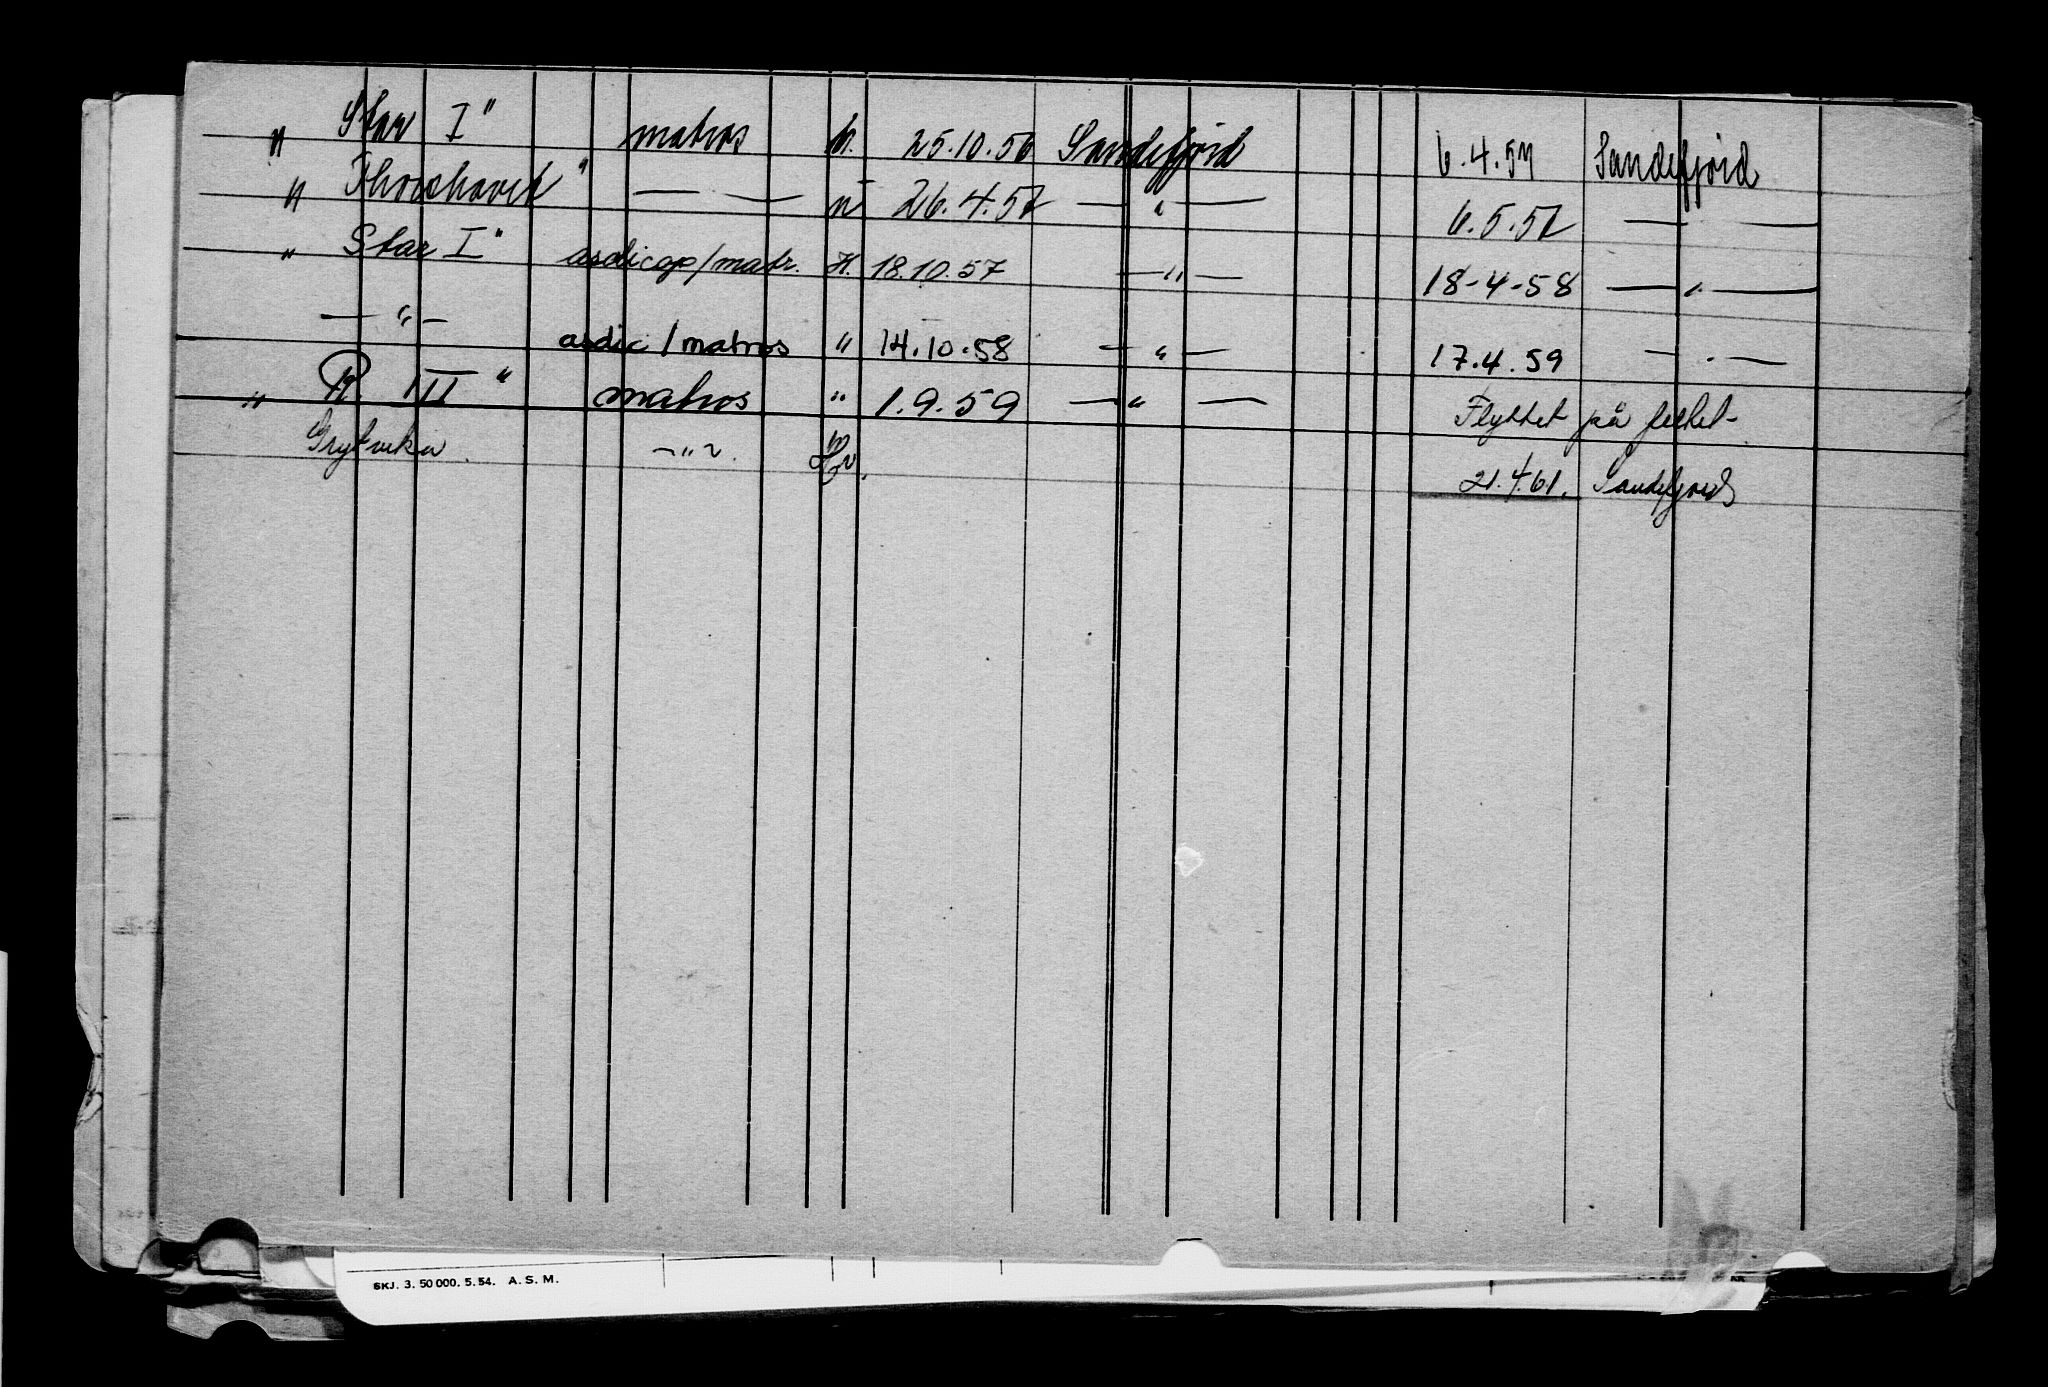 „ Star I" matros h. 25.10.56 Sandefjord 6.4.57 Sandefjord
„ Thorshavet" — — n 26.4.57 — " — 6.5.57 — " —
„ Star I" asdicop/matr. H. 18.10.57 — " — 18-4-58 — " —
— " — asdic/matros " 14.10.58 — " — 17.4.59 — " —
„ R. III" matros " 1.9.59 — " — Flyttet på feltet
Grytvika — " — 21.4.61. Sandefjord
SKJ. 3. 50 000. 5. 54. A. S. M.